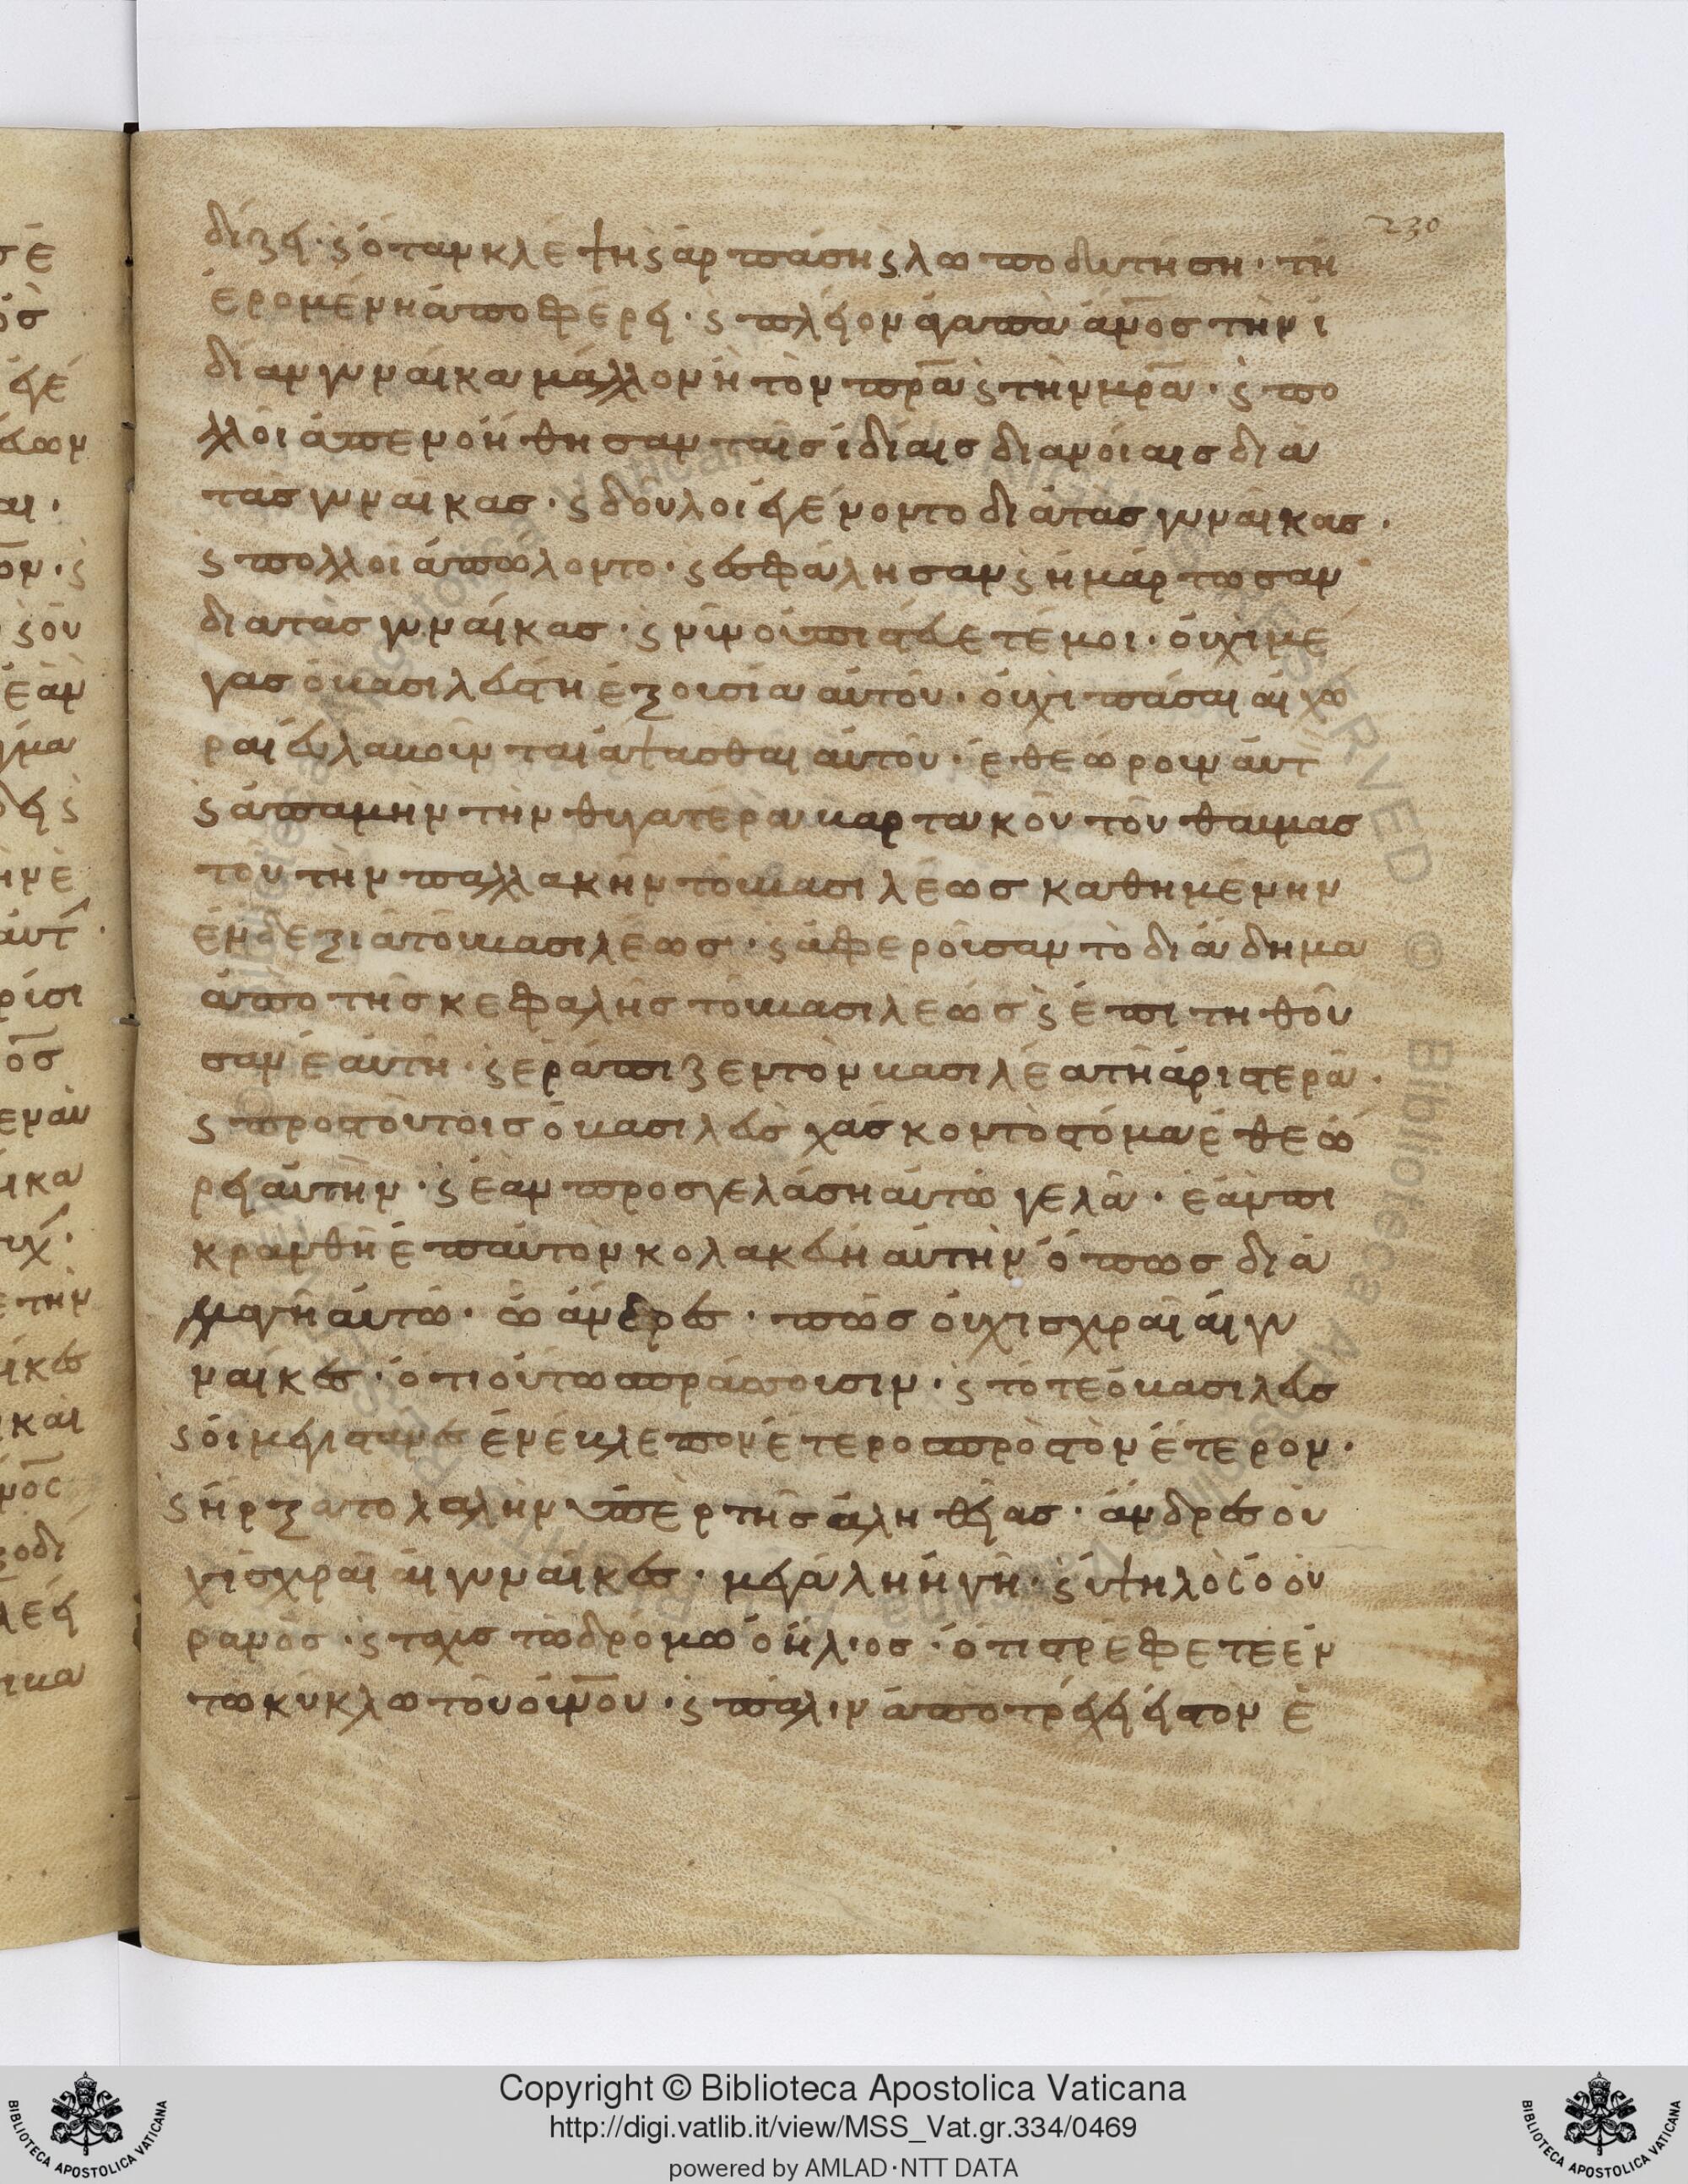 230
δίζει· ϛ ὅταν κλέψη ϛ ἁρπάση ϛ λωποδυτήση· τῆ
ἐρομένη ἀποφέρει· ϛ πλεῖον ἀγαπᾶ ἄν̅ο̅ς τὴν ἰ
δίαν γυναίκα μάλλον ἢ τὸν π̅ρ̅α̅ ϛ τὴν μ̅ρ̅α̅· ϛ πο
λλοὶ ἀπενοήθησαν ταῖς ἰδίαις διανοίαις διὰ
τὰς γυναίκας· ϛ δοῦλοι ἐγένοντο διὰ τὰς γυναίκας·
ϛ πολλοὶ ἀπώλοντο· ϛ ἐσφάλησαν ϛ ἡμάρτωσαν
διὰ τὰς γυναίκας· ϛ νῦν οὐ πιστεύετέ μοι· οὐχὶ μέ
γας ὁ βασιλεὺς τῆ ἐξουσία αὐτοῦ· οὐχὶ πᾶσαι αἱ χῶ
ραι εὐλαβοῦνται ἅψασθαι αὐτοῦ· ἐθεώρουν αὐτ
ϛ ἀπαμὴν τὴν θυγατέρα βαρτακοῦ τοῦ θαυμασ
τοῦ τὴν παλλακὴν τοῦ βασιλέως καθημένην
ἐν δεξιᾶ τοῦ βασιλέως· ϛ ἀφεροῦσαν τὸ διάδημα
ἀπὸ τῆς κεφαλῆς τοῦ βασιλεώς ϛ ἐπιτηθοῦ
σαν ἑαυτῆ· ϛ ἐράπιζεν τὸν βασιλέα τῆ ἀριστερᾶ·
ϛ πρὸς τούτοις ὁ βασιλεὺς χάσκον τὸ στόμα ἐθεώ
ρει αὐτὴν· ϛ ἐὰν προσγελάση αὐτῶ γελᾶ· ἐὰν πι
κρανθῆ ἐπ αὐτὸν κολακεύη αὐτὴν ὅπως δια
λλαγῆ αὐτῶ· ὦ ἄνδρες· πῶς οὐχὶ ἰσχυραὶ αἱ γυ
ναίκες· ὅτι οὕτω πράσσουσιν· ϛ τότε ὁ βασιλεὺς
ϛ οἱ μεγιστάνες ἐνέβλεπον ἕτερο πρὸς τὸν ἕτερον·
ϛ ἤρξατο λαλὴν ὑπὲρ τῆς ἀληθείας· ἄνδρες οὐ
χὶ ἰσχυραὶ αἱ γυναίκες· μεγάλη ἡ γῆ· ϛ ὑψηλὸς ὁ οὐ
ρανός· ϛ ταχὺς τῶ δρόμω ὁ ἥλιος· ὅτι στρέφετε ἐν
τῶ κύκλω τοῦ οὐν̅ο̅υ· ϛ πάλιν ἀποτρέχει εἰς τὸν ἑ
Copyright © Biblioteca Apostolica Vaticana
http://digi.vatlib.it/view/MSS_Vat.gr.334/0469
powered by AMLAD·NTT DATA
BIBLIOTECA APOSTOLICA VATICANA
BIBLIOTECA APOSTOLICA VATICANA